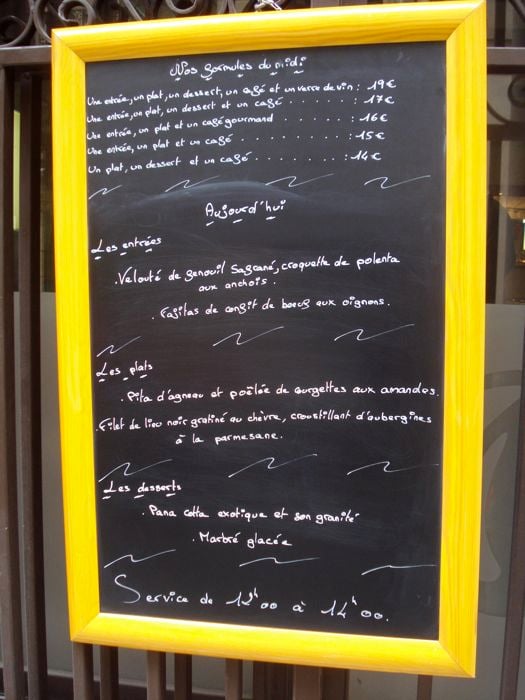 Nos formules du midi
Une entrée, un plat, un dessert, un café et un verre de vin : 19€
Une entrée, un plat, un dessert et un café . . . . . . . . : 17€
Une entrée, un plat et un café gourmand . . . . . . : 16€
Une entrée, un plat et un café . . . . . . . . : 15€
Un plat, un dessert et un café . . . . . . . . : 14€
Aujourd'hui
Les entrées
. Velouté de fenouil safrané, croquette de polenta
aux anchois.
. Fajitas de confit de boeuf aux oignons.
Les plats
. Pita d'agneau et poêlée de courgettes aux amandes.
. Filet de lieu noir gratiné au chèvre, croustillant d'aubergines
à la parmesane.
Les desserts
. Pana cotta exotique et son granité
. Marbré glacée
Service de 12h00 à 14h00.